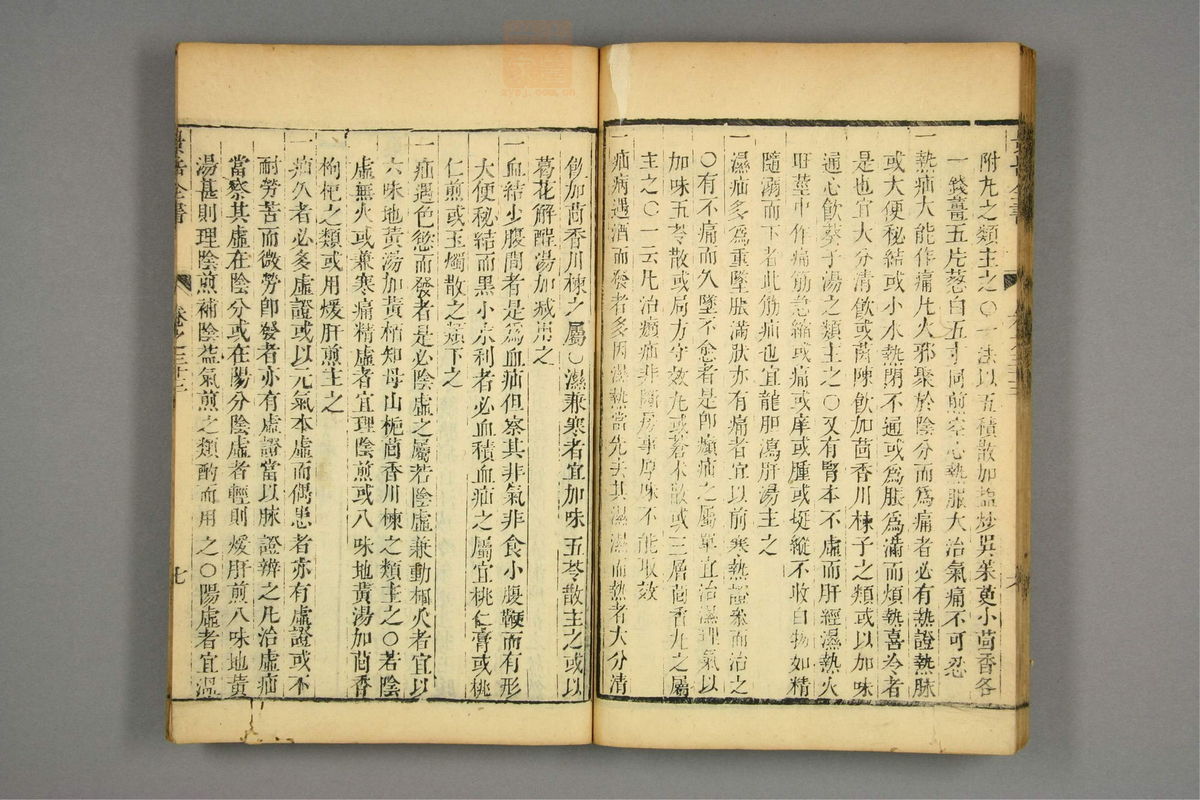 附丸之類主之○一法以五積散加鹽炒吳茱萸小茴香各
一錢薑五片葱白五寸同煎空心熱服大治氣痛不可忍
一熱疝大能作痛凡火邪聚於陰分而爲痛者必有熱證熱脉
或大便秘結或小水熱閉不通或爲脹爲滿而煩熱喜冷者
是也宜大分清飲或茵陳飲加茴香川楝子之類或以加味
通心飲葵子湯之類主之○又有腎本不虛而肝經濕熱火
旺莖中作痛筋急縮或痛或痒或腫或挺縱不收白物如精
隨溺而下者此筋疝也宜龍胆瀉肝湯主之
一濕疝多爲重墜脹滿然亦有痛者宜以前寒熱證兼而治之
○有不痛而久墜不愈者是卽㿗疝之屬單宜治濕理氣以
加味五苓散或局方守效丸或蒼术散或三層茴香丸之屬
主之○一云凡治㿗疝非斷房事厚味不能取效
一疝病遇酒而發者多因濕熱當先去其濕濕而熱者大分清
飲加茴香川楝之屬○濕兼寒者宜加味五苓散主之或以
葛花解酲湯加减用之
一血結少腹間者是爲血疝但察其非氣非食小腹鞕而有形
大便秘結而黑小水利者必血積血疝之屬宜桃仁膏或桃
仁煎或玉燭散之類下之
一疝遇色慾而發者是必陰虛之屬若陰虛兼動相火者宜以
六味地黃湯加黃栢知母山梔茴香川楝之類主之○若陰
虛無火或兼寒痛精虛者宜理陰煎或八味地黃湯加茴香
枸杞之類或用煖肝煎主之
一疝久者必多虛證或以元氣本虛而偶患者亦有虛證或不
耐勞苦而微勞卽發者亦有虛證當以脉證辨之凡治虛疝
當察其虛在陰分或在陽分陰虛者輕則煖肝煎八味地黃
湯甚則理陰煎補陰益氣煎之類酌而用之○陽虛者宜溫
景岳全書
卷之三十三
七